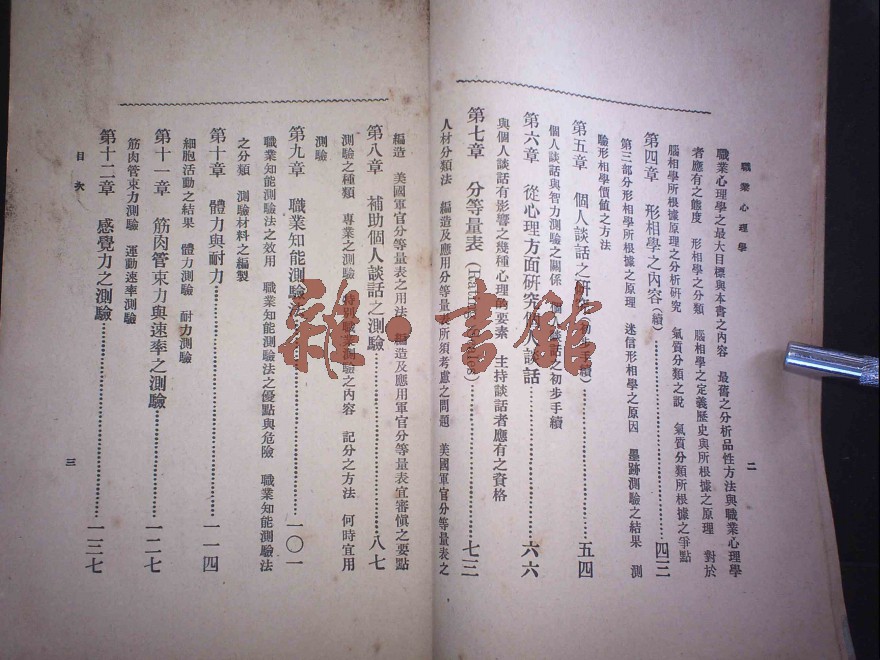 職業心理學
二
職業心理學之最大目標與本書之內容 最舊之分析品性方法與職業心理學
者應有之態度 形相學之分類 腦相學之定義歷史與所根據之原理 對於
腦相學所根據原理之分析研究 氣質分類之說 氣質分類所根據之爭點
第四章 形相學之內容(續)⋯⋯四三
第三部分形相學所根據之原理 迷信形相學之原因 墨跡測驗之結果 測
驗形相學價值之方法
第五章 個人談話之研究(初步手續)⋯⋯五四
個人談話與智力測驗之關係 個人談話之初步手續
第六章 從心理方面研究個人談話⋯⋯六六
與個人談話有影響之幾種心理的要素 主持談話者應有之資格
第七章 分等量表(Rating Scales)⋯⋯七三
人材分類法 編造及應用分等量表所須考慮之問題 美國軍官分等量表之
編造 美國軍官分等量表之用法 編造及應用軍官分等量表宜審慎之要點
第八章 補助個人談話之測驗⋯⋯八七
測驗之種類 專業之測驗 特別職業測驗之內容 記分之方法 何時宜用
測驗
第九章 職業知能測驗法⋯⋯一〇一
職業知能測驗法之效用 職業知能測驗法之優點與危險 職業知能測驗法
之分類 測驗材料之編製
第十章 體力與耐力⋯⋯一一四
細胞活動之結果 體力測驗 耐力測驗
第十一章 筋肉管束力與速率之測驗⋯⋯一二七
筋肉管束力測驗 運動速率測驗
第十二章 感覺力之測驗⋯⋯一三七
目次
三
雜·書館